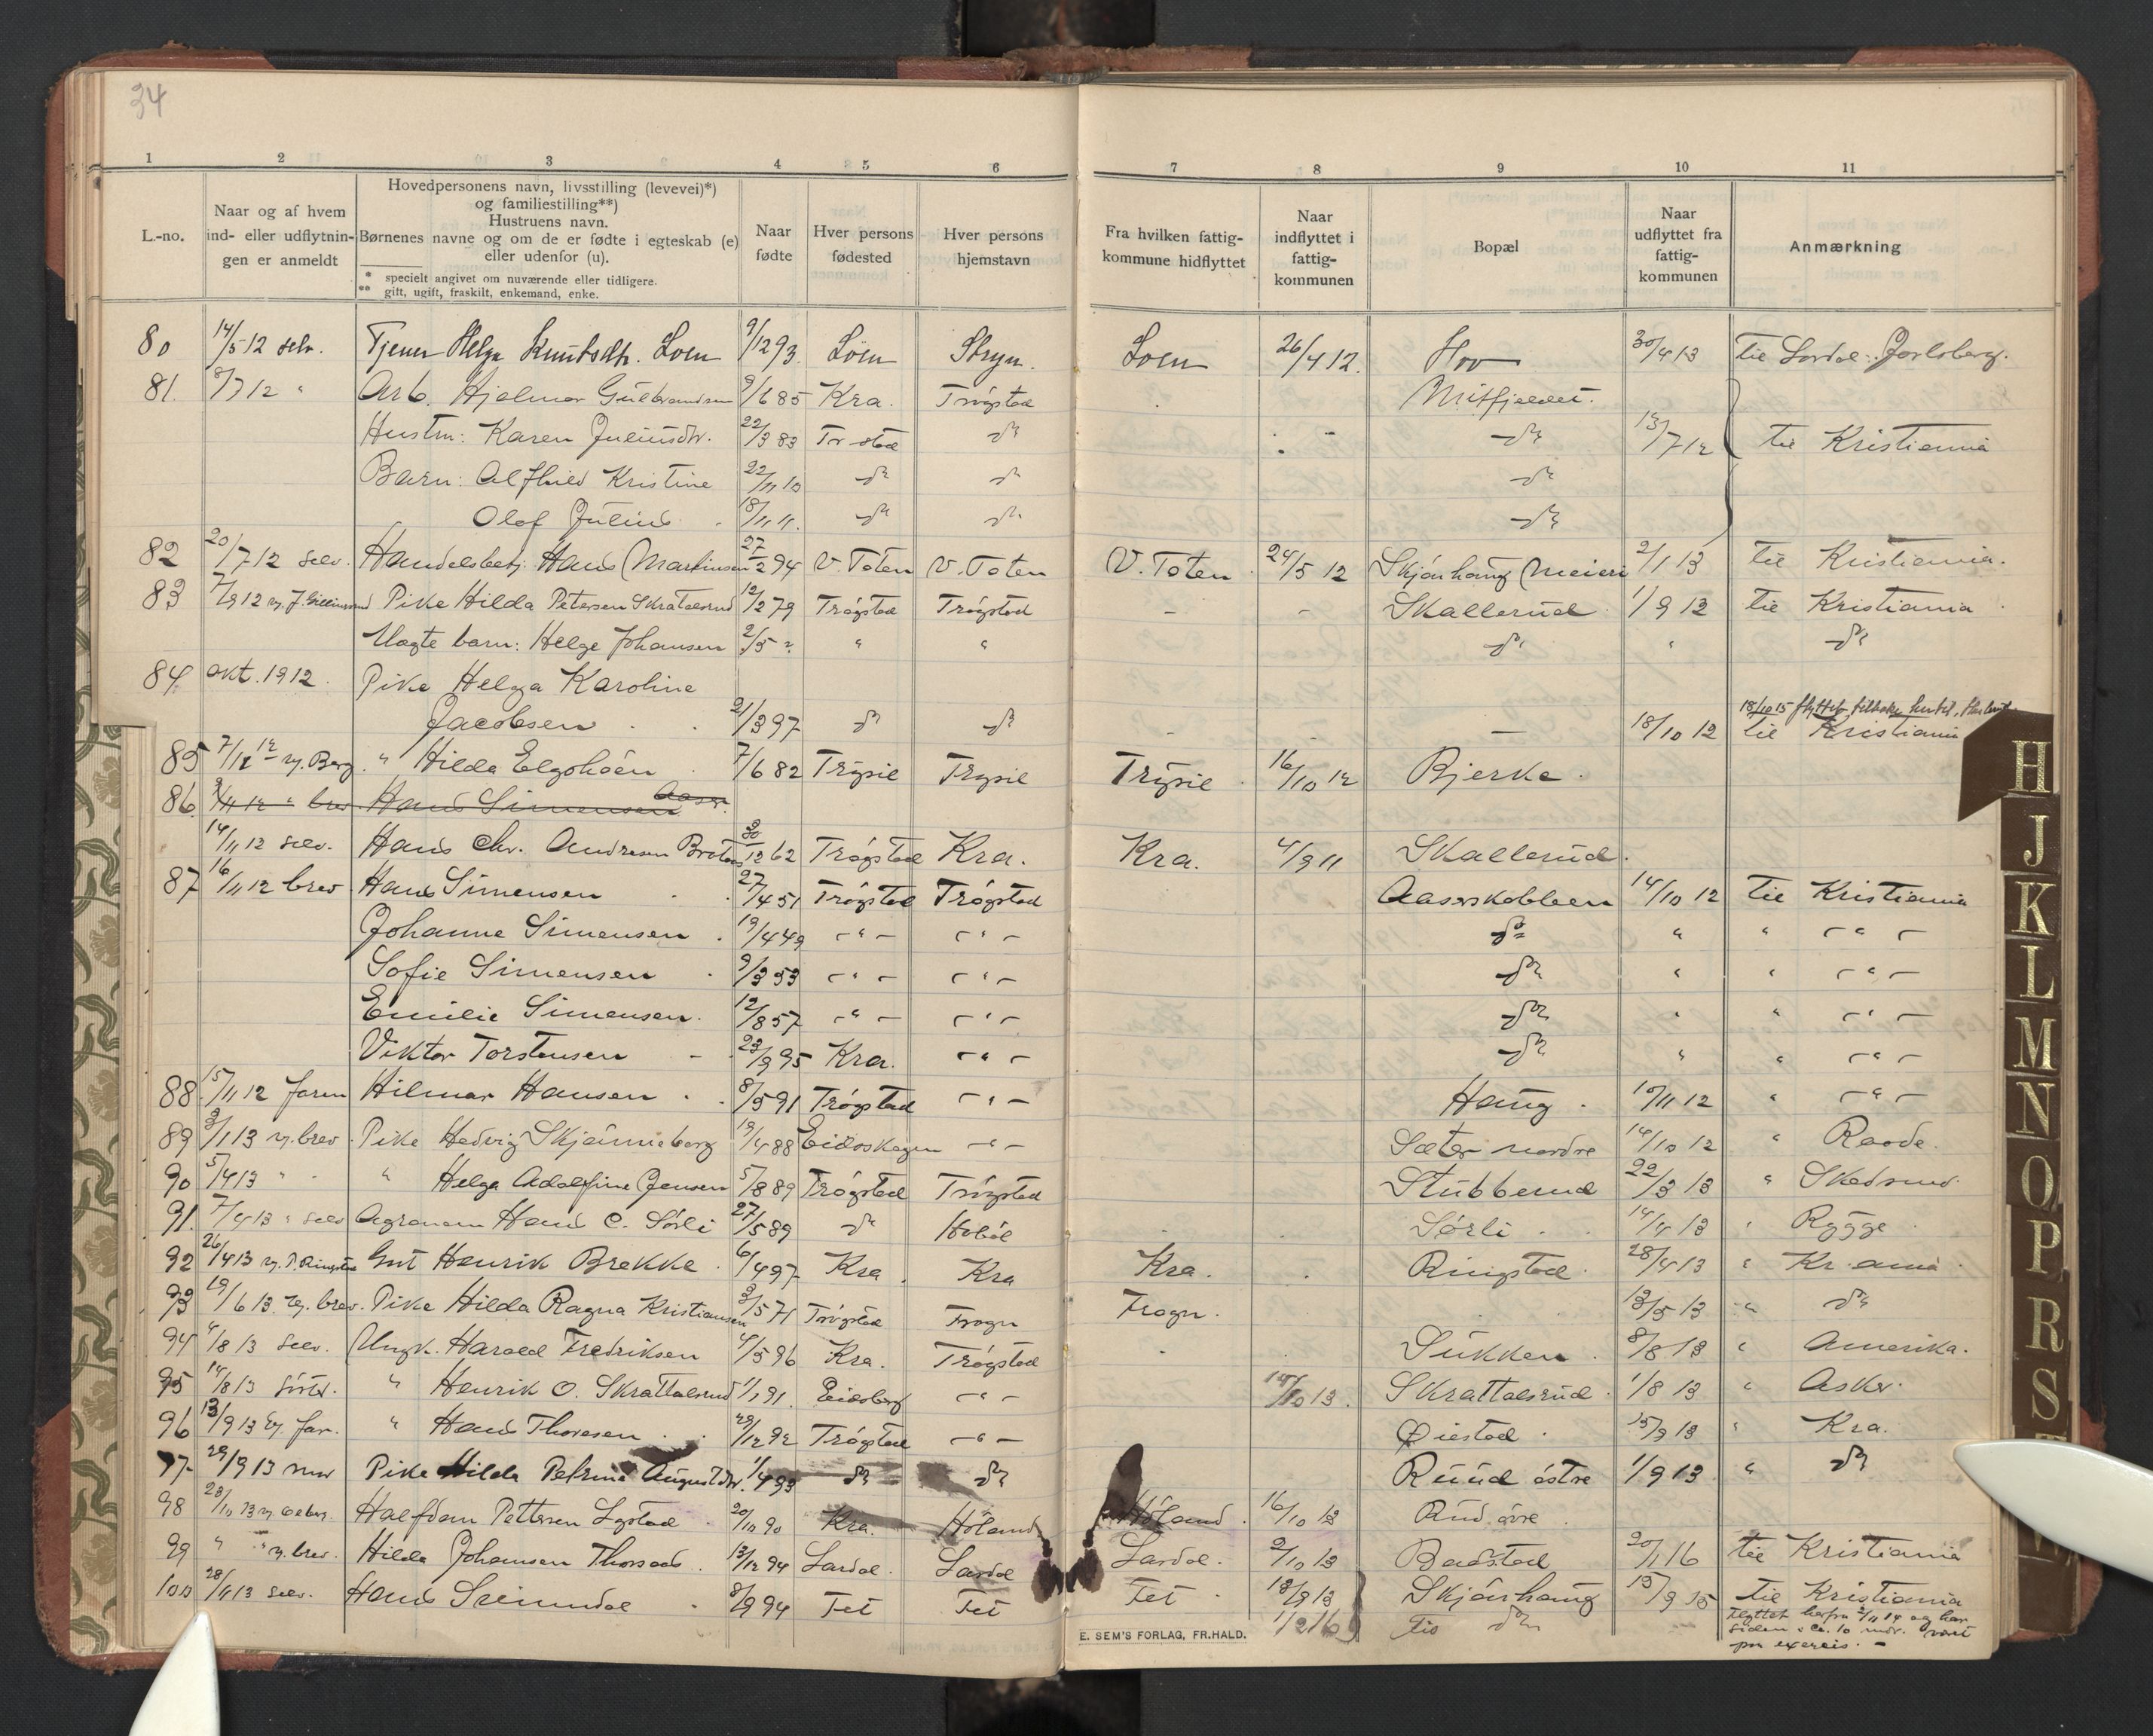 34
1 2 3 4 5 6 7 8 9 10 11
L.-no.
Naar og af hvem ind- eller udflytnin- gen er anmeldt
Hovedpersonens navn, livsstilling (levevei)*)
og familiestilling**)
Hustruens navn.
Børnenes navne og om de er fødte i egteskab (e)
eller udenfor (u).
* specielt angivet om nuværende eller tidligere.
** gift, ugift, fraskilt, enkemand, enke.
Naar fødte
Hver persons fødested
Hver persons hjemstavn
Fra hvilken fattig- kommune hidflyttet
Naar indflyttet i fattig- kommunen
Bopæl
Naar udflyttet fra fattig- kommunen
Anmærkning
80 14/5 12 selv. Tjener Helga Knutsdtr. Loen 9/12 93 Loen Stryn. Loen 26/4 12. Hov 30/4 13 til Lardal. Jarlsberg.
81. 9/7 12 " Arb. Hjelmar Gulbrandsen 9/6 85 Kra. Trögstad Mitfjeldet.
Hustru: Karen Juliusdtr. 22/3 83 Tr-stad do do 13/7 12 til Kristiania
Barn: Alfhild Kristine 22/11 10 do do do
Olaf Julius 18/11 11. do do do
82 20/7 12 selv. Handelsbetj. Hans Martinsen 27/2 94 V. Toten V. Toten V. Toten 24/5 12 Skjönhaug Meieri 2/1 13 til Kristiania.
83 7/9 12 v. J. Pike Hilda Petersen Skratalsrud 12/2 79 Trögstad Trögstad - - Skallerud 1/9 12 til Kristiania
Uægte barn: Helge Johansen 2/5 " " do " do
84. okt. 1912. Pike Helga Karoline
Jacobsen 21/3 97 do do - - - 18/10 12 18/10 15 flyttet tilbake hertil,
til Kristiania
85 7/12 12 v. Berg " Hilda Elgshöen 7/6 82 Trysil Trysil Trysil 16/10 12 Bjerke.
86. 9/11 12 " brev Hans Simensen Aaser
14/11 12 selv. Hans Chr. Andresen Braten 30/12 62 Trögstad Kra. Kra. 4/9 11 Skallerud.
87 16/11 12 brev Hans Simensen 27/4 51 Trögstad Trögstad Aaserskobben 14/10 12 til Kristiania
Johanne Simensen 19/4 49 - " - - " - do " " - " -
Sofie Simensen 9/3 53 - " - - " - do " " - " -
Emilie Simensen. 12/8 57 - " - - " - do " " - " -
Viktor Torstensen 23/9 95 Kra. - " - do " " - " -
88. 15/11 12 faren Hilmar Hansen 8/5 91 Trögstad - " - Haug 10/11 12 " - " -
89 3/1 13 v. brev Pike Hedvig Skjönneberg 19/4 88 Eidskogen - " - Sæter nordre 14/10 12 " Raade.
90 5/4 13 " " Helga Adolfine Jensen 5/8 89 Trögstad Trögstad Stubberud 22/3 13 " Skedsmo.
91. 7/4 13 " selv Agronom Hans C. Sørli 27/5 89 do Hobøl Sørli 14/4 13 " Rygge
92 26/4 13 v. P. Ringstad Gut Henrik Brekke 6/4 97 Kra Kra Kra. Ringstad 28/4 13 " Kr.ania
93 19/6 13. v. brev. Pike Hilda Ragna Kristiansen 3/5 71 Trögstad Frogn Frogn. 13/5 13 " do
94 4/8 13 selv. Ungk. Harald Fredriksen 4/5 96 Kra. Trögstad Sukken 8/8 13 " Amerika.
95 14/8 13 søster. " Henrik O. Skrattalsrud 1/1 91. Eidsberg - " - 14/10 13. Skrattalsrud 1/8 13 " Asker.
96 13/9 13 v. far. " Hans Thoresen 29/12 92 Trögstad - " - Øiestad 15/9 13 " Kra.
97 29/9 13 mor Pike Hilda Petrine Augustdtr. 1/4 93 do do Ruud östre 1/9 13 " do
98 23/10 13 Halfdan Pettersen Løstad 20/10 90 Kra. Höland Höland 16/10 13 Rud övre
99 " " v. brev. Hilda Johansen Thorsaas 13/12 94 Lardal. Lardal Lardal. 2/10 13 Badstad 20/1 16 til Kristiania
100 28/11 13 selv. Hans Sreimdal 8/9 94 Fet Fet Fet 13/9 13 Skjönhaug 15/9 15 til Kristiania
1/2 16 do
Flyttet herfra 2/11 14 og har
siden ca. 10 mdr. været
paa exercis. -
E. SEM'S FORLAG, FR.HALD.
H
J
K
L
M
N
O
P
R
S